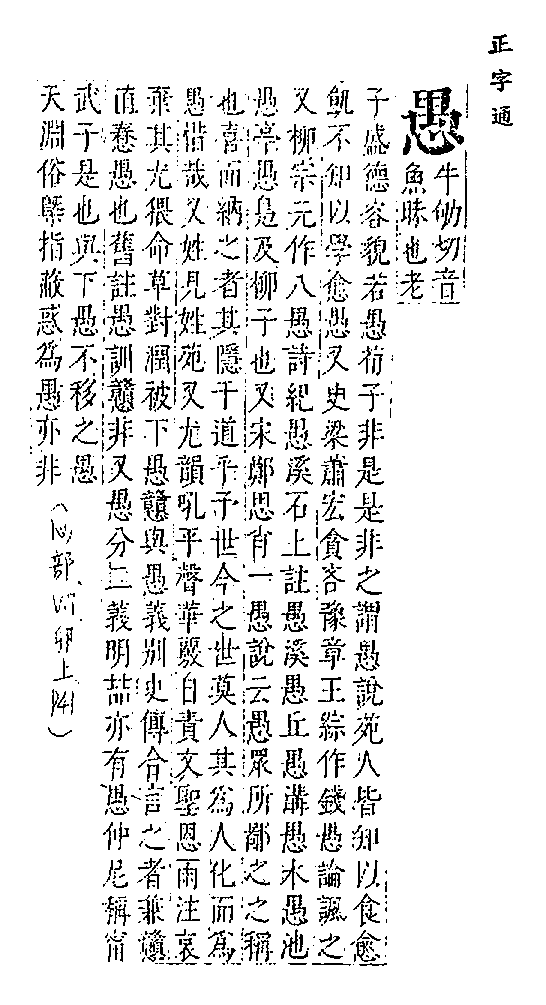 正字通
愚
牛劬切音
魚昧也老
子盛德容貌若愚荀子非是是非之謂愚說苑人皆知以食愈
飢不知以學愈愚又史梁蕭宏貪吝豫章王綜作錢愚論諷之
又柳宗元作八愚詩紀愚溪石上註愚溪愚丘愚溝愚水愚池
愚亭愚島及柳子也又宋鄭思肖一愚說云愚眾所鄙之之稱
也喜而納之者其隱于道乎予世今之世莫人其為人化而為
愚惜哉又姓見姓苑又尤韻吼平聲華覈自責文聖恩雨注哀
棄其尤猥命草對潤被下愚戇與愚義別史傳合言之者兼戇
直惷愚也舊註愚訓戇非又愚分二義明喆亦有愚仲尼稱甯
武子是也與下愚不移之愚
天淵俗槩指蔽惑為愚亦非
(心部 卯上 P41)